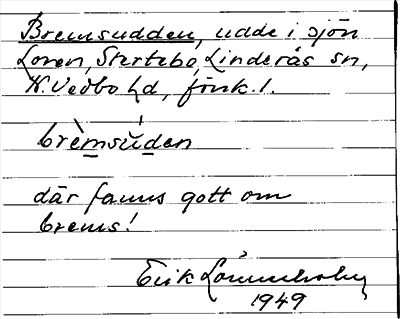 Bremsudden, udde i sjön
Loren, Stertebo, Linderås sn,
N. Vedbo hd, fönk. 1.
brè̱msŭ́ḏen
där fanns gott om
brems!
Erik
1949